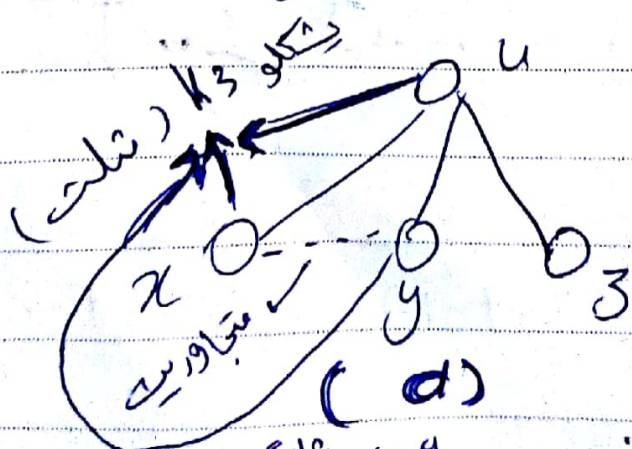 u
يشكلو K3 (مثلث)
x
y
z
متجاورين
(d)